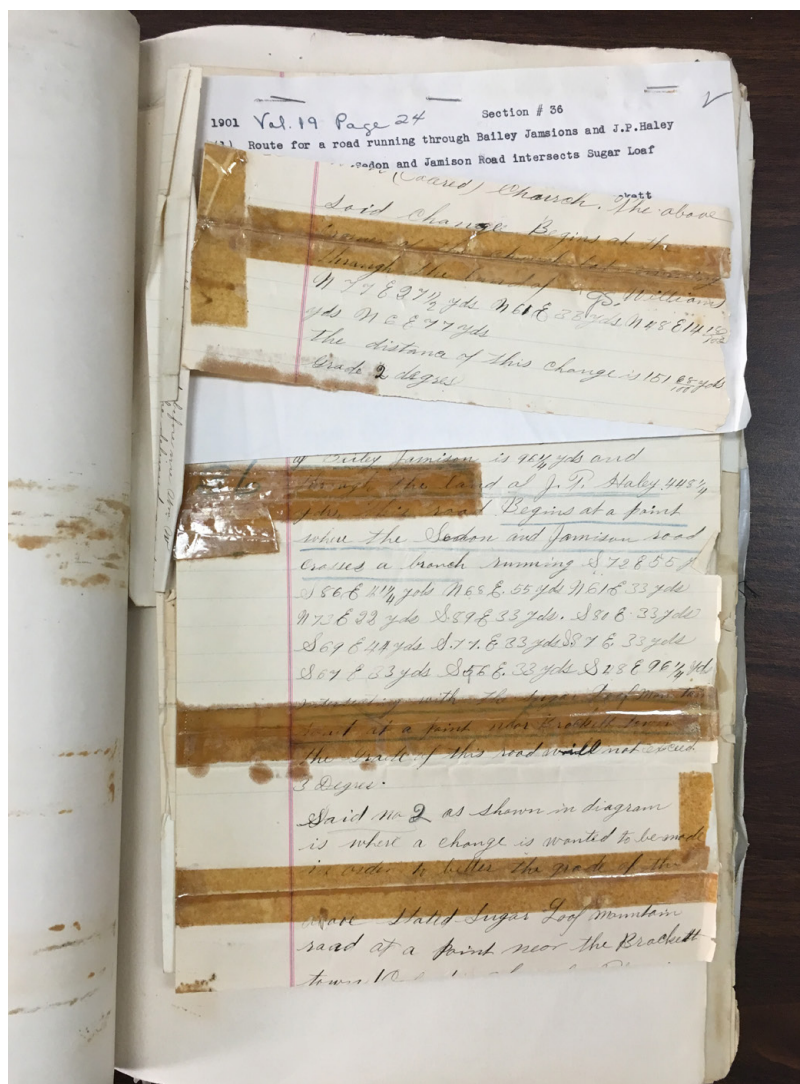 1901 Vol. 19 Page 24 Section # 36
Route for a road running through Bailey Jamsions and J.P.Haley
Sedon and Jamison Road intersects Sugar Loaf
(Coared) Church. The above
said change Begins at the
through the land of Williams
N 77 E 27½ yds N 61 E 33 yds N 48 E 14
yds N 6 E 77 yds
the distanc of this change is 151 yds
Grade 2 degres
Jamison is 96¼ yds and
through the land of J. P. Haley 448¼
yds. this road Begins at a point
where the Sedon and Jamison road
Crosses a branch running S 72 E 55
S 86 E 41¼ yds N 68 E. 55 yds N 61 E 33 yds
N 73 E 22 yds S 89 E 33 yds. S 80 E 33 yds
S 69 E 44 yds S. 77. E 33 yds S 87 E. 33 yds
S 67 E 33 yds S 56 E. 33 yds S 48 E 96¼ yd
with the
at a point near Brackett town
the grade of this road will not exceed
3 Degres.
Said no 2 as shown in diagram
is where a change is wanted to be made
in order to better the grade of the
above stated Sugar Loof mountain
road at a point near the Brackett
town